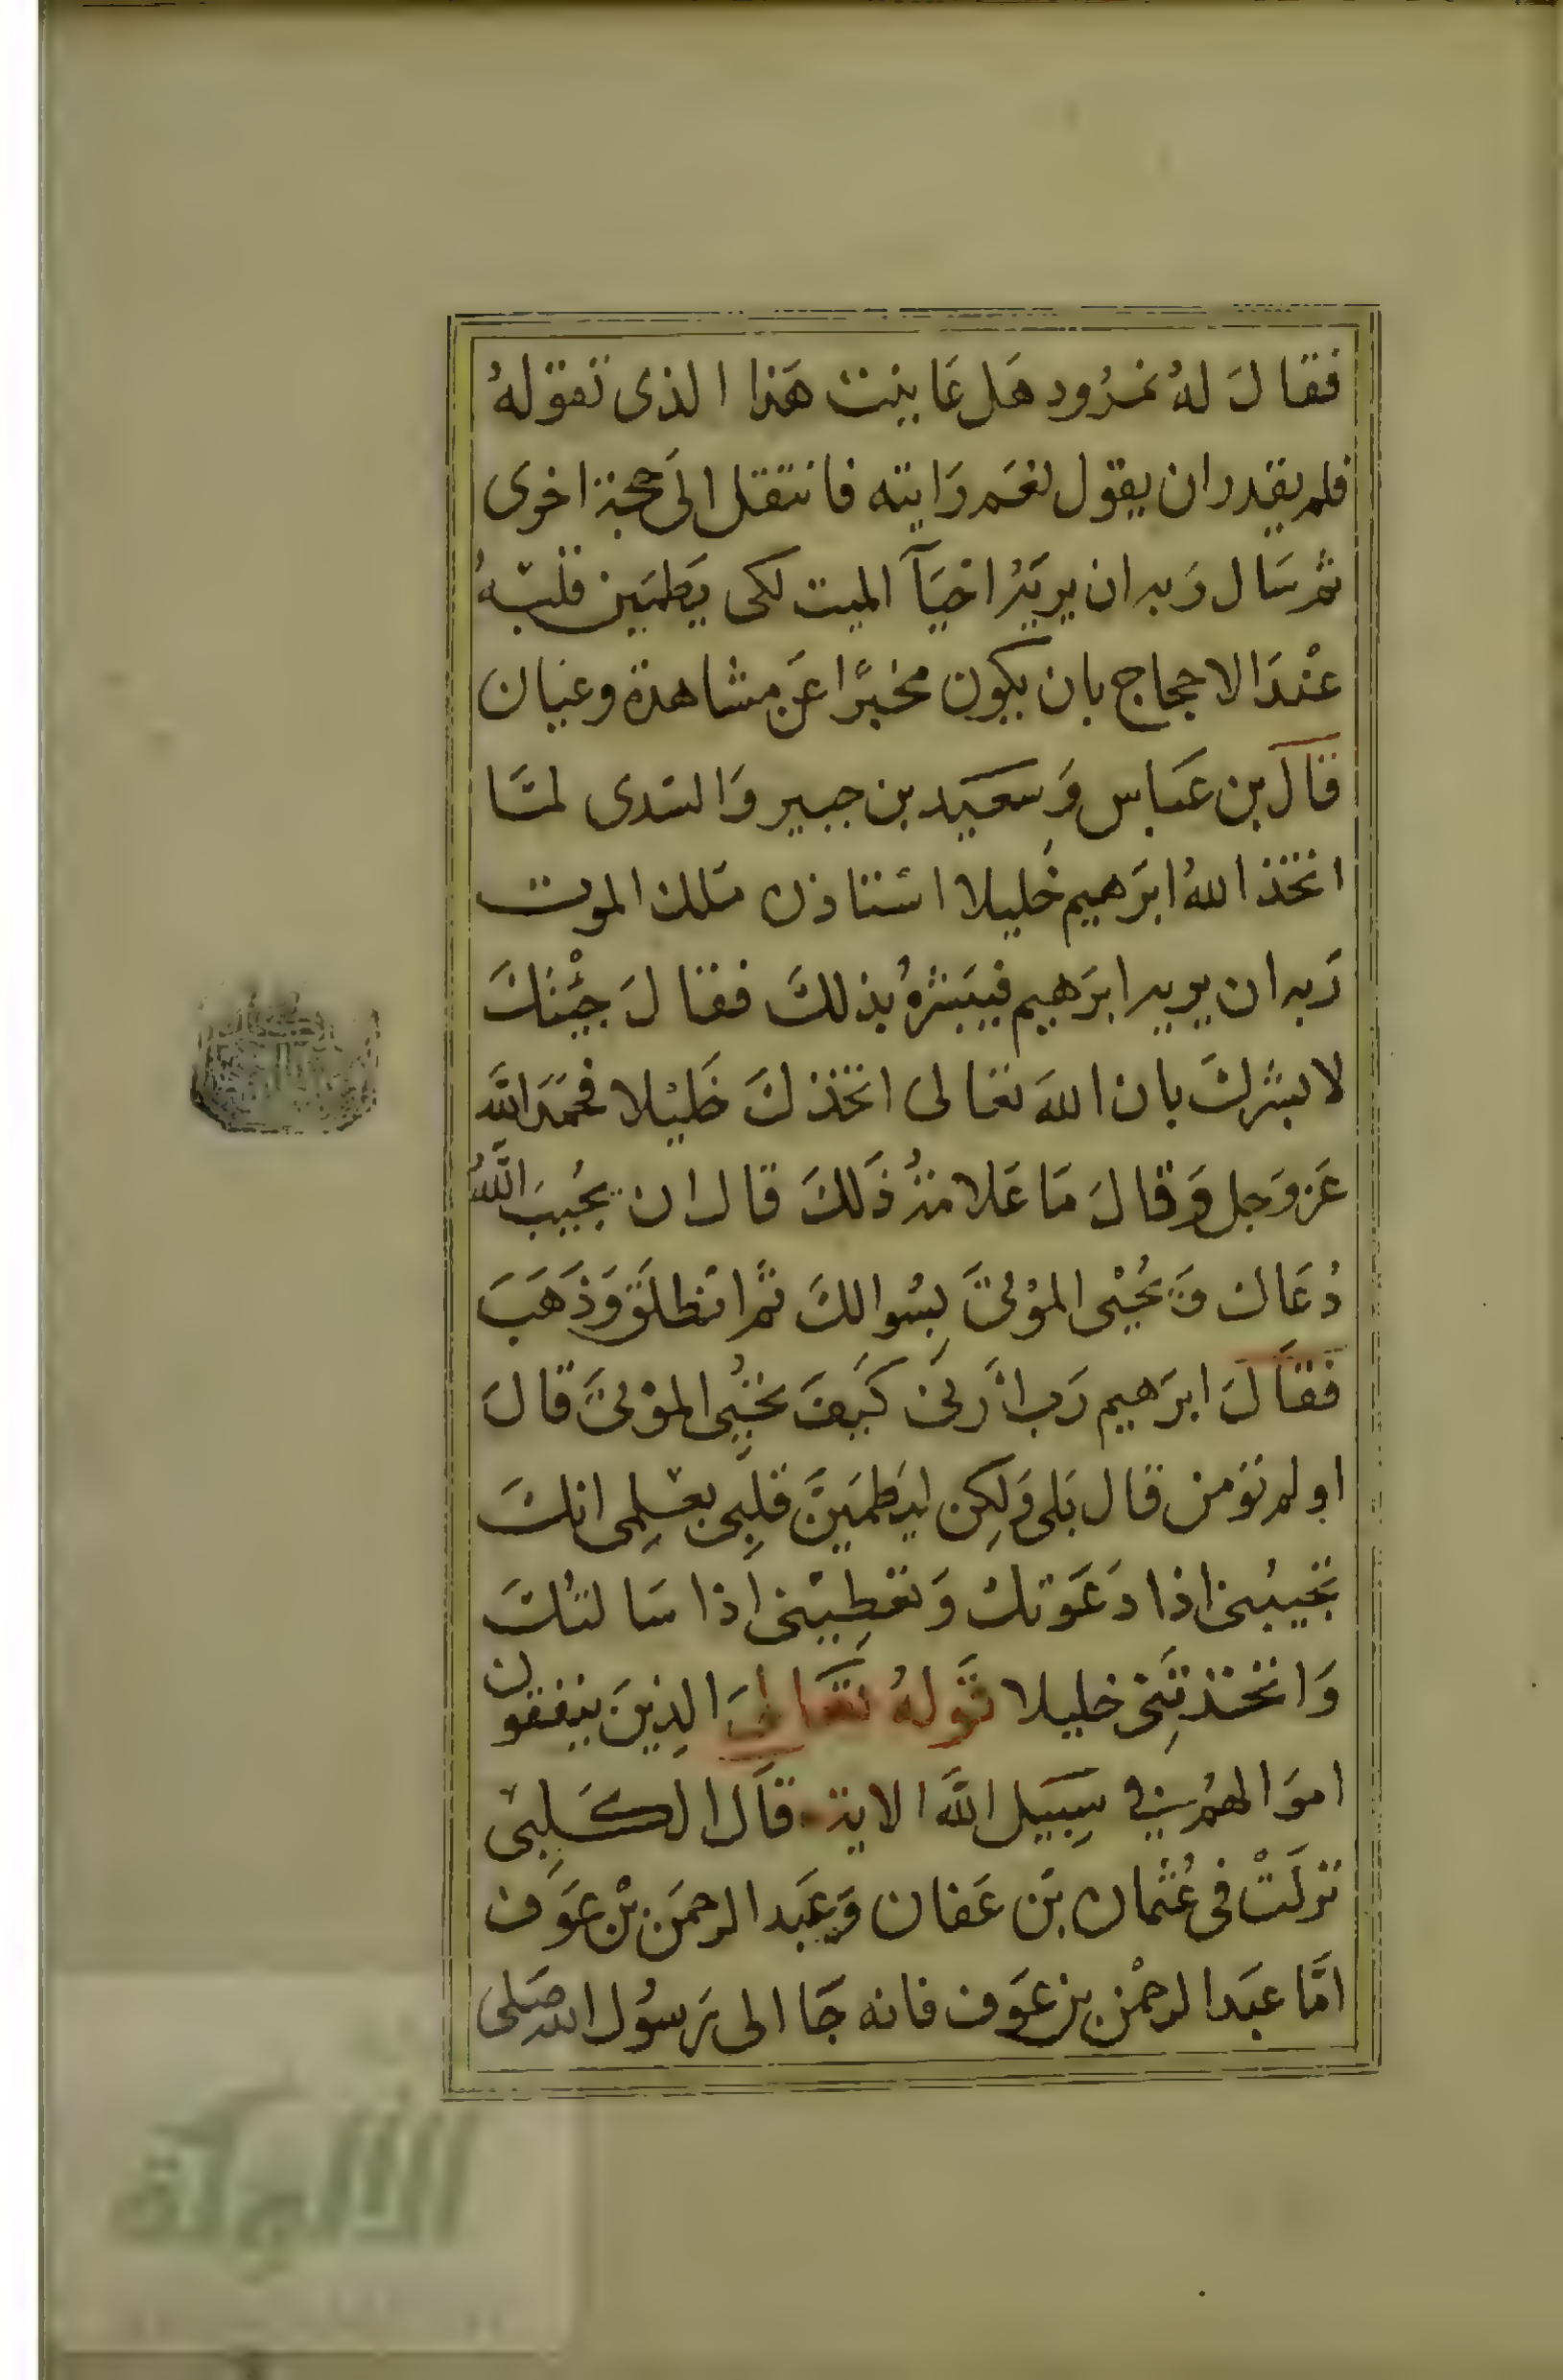 فقال لهُ نمرُود هَل عَاينت هَذا الذى تقولهُ
فلم يقدر ان يقول نعَم رَايته فانتقل الىَ حجة اخرى
ثم سَال رَبه ان يريَهُ احيَآ الميت لكى يَطمَين قلبهُ
عنْدَ الاحجاج بان يكون مخبرًا عَن مشاهدة وعيان
قال بن عَباس وَسعَيد بن جبير وَالسَدى لمَّا
اتخذ اللهُ ابرَهيم خَليلا استاذن مَلك الموت
رَبه ان يريه ابرَهيم فيبَشرهُ بذلكَ فقال جئْتكَ
لابشركَ بان اللهَ تعَالى اتخذكَ خَليْلا فحمَدَ اللَّه
عَز وَجل وَقالَ مَا عَلامةُ ذَلكَ قال ان يجُيبَ اللَّهُ
دُعَاك وَيحُيْى الموْتىَ بسُوالكَ ثمَّ انْطلقَ وَذَهَبَ
فقالَ ابرَهيم رَب ارَنى كيَفَ تحُيِى الموْتىَ قالَ
اولم تومن قال بَلى وَلكِن ليَطمَينَّ قلبِى بعْلِمى انكَ
تجَيبُنى اذا دَعَوتك وَتعَطِيْنى اذا سَالتكَ
وَاتخذتنِى خليلا قَولهُ تعَالىَ الذِينَ ينفقون
اموَالهُم فى سِبَيل اللَّه الاية قال الكَلِبى
نزلَتْ فى عُثمان بَن عَفان وَعَبَد الرحمَن بْن عوَف
امَّا عبَد الرحمْن بن عوَف فانه جَا الى رَسُول الله صَلى
الألوكة